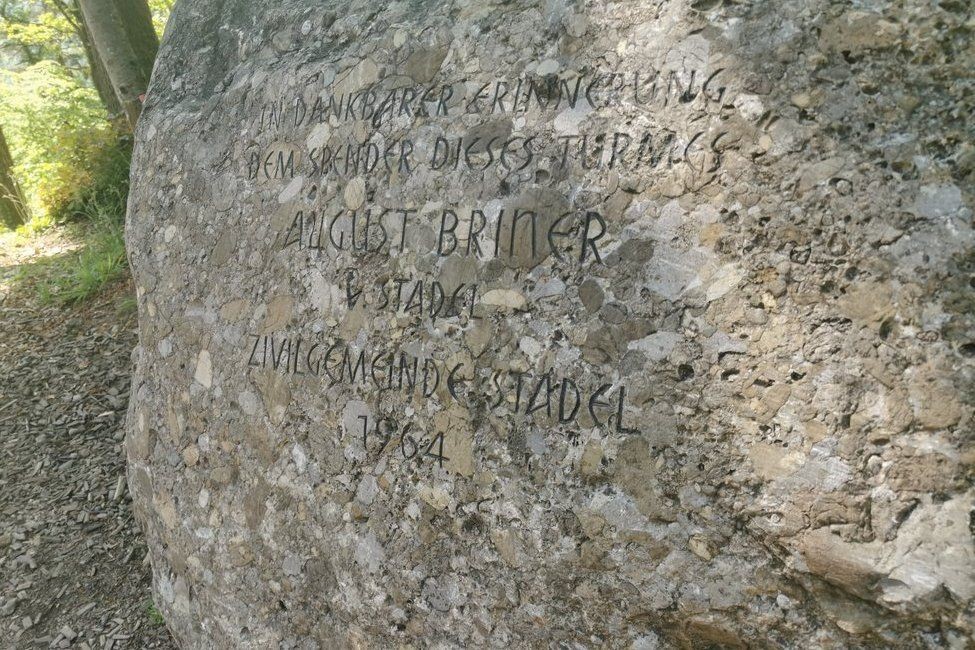 IN DANKBARER ERINNERUNG
DEM SPENDER DIESES TURMES
AUGUST BRINER
STADEL
ZIVILGEMEINDE STADEL
1964